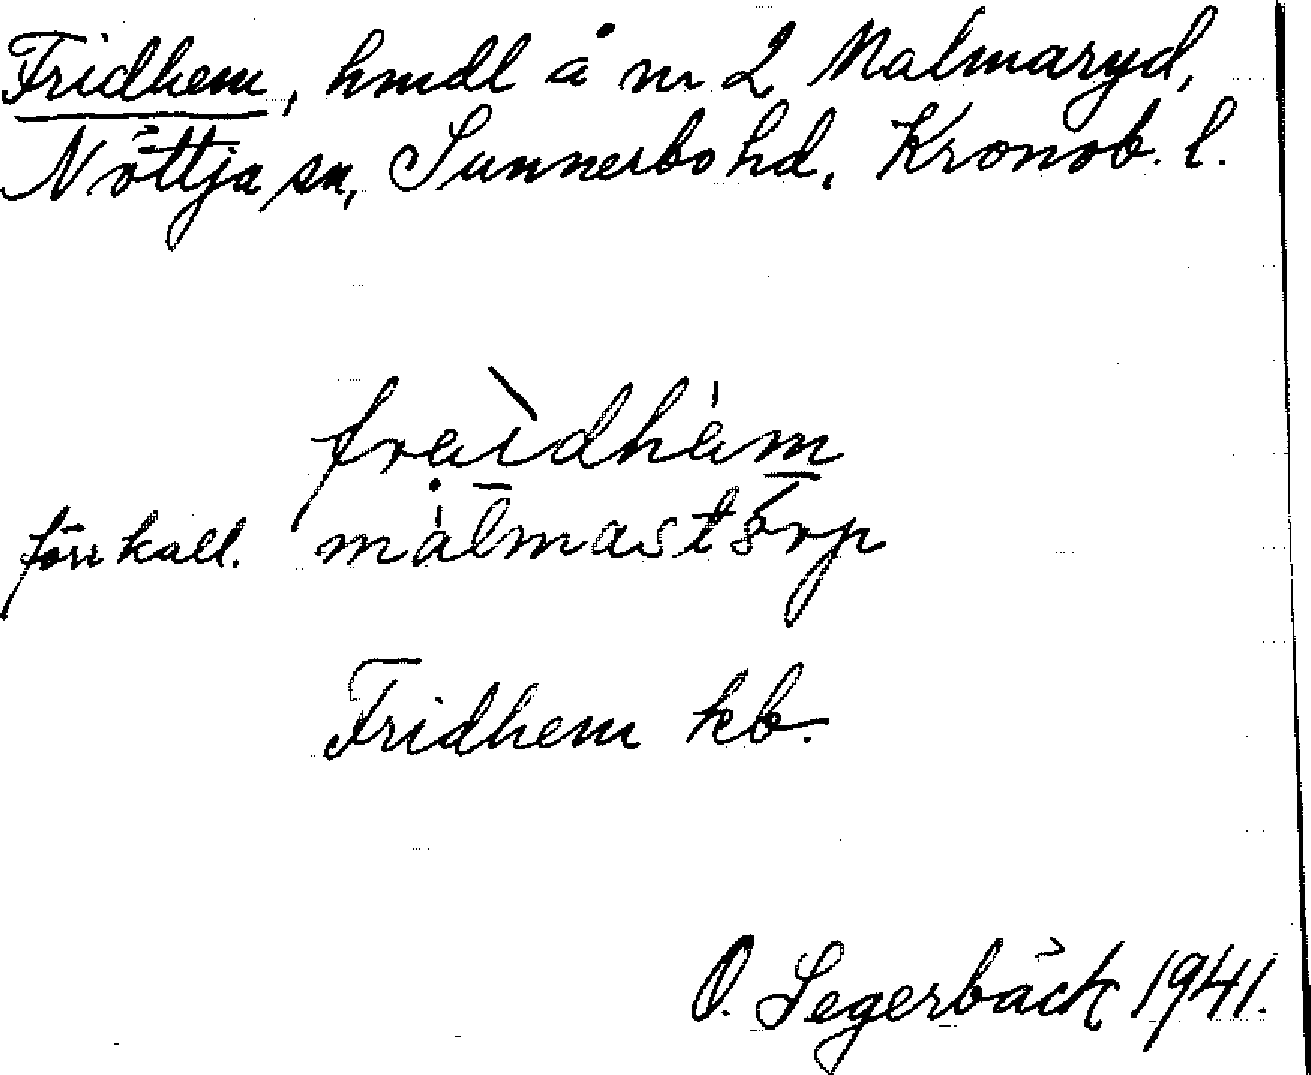 Fridhem, hmdl å nr 2 Malmaryd,
Nöttja sn, Sunnerbo hd, Kronob. l.
fraidhäm
förr kall. malmastorp
Fridhem kb.
O. Segerbäck 1941.